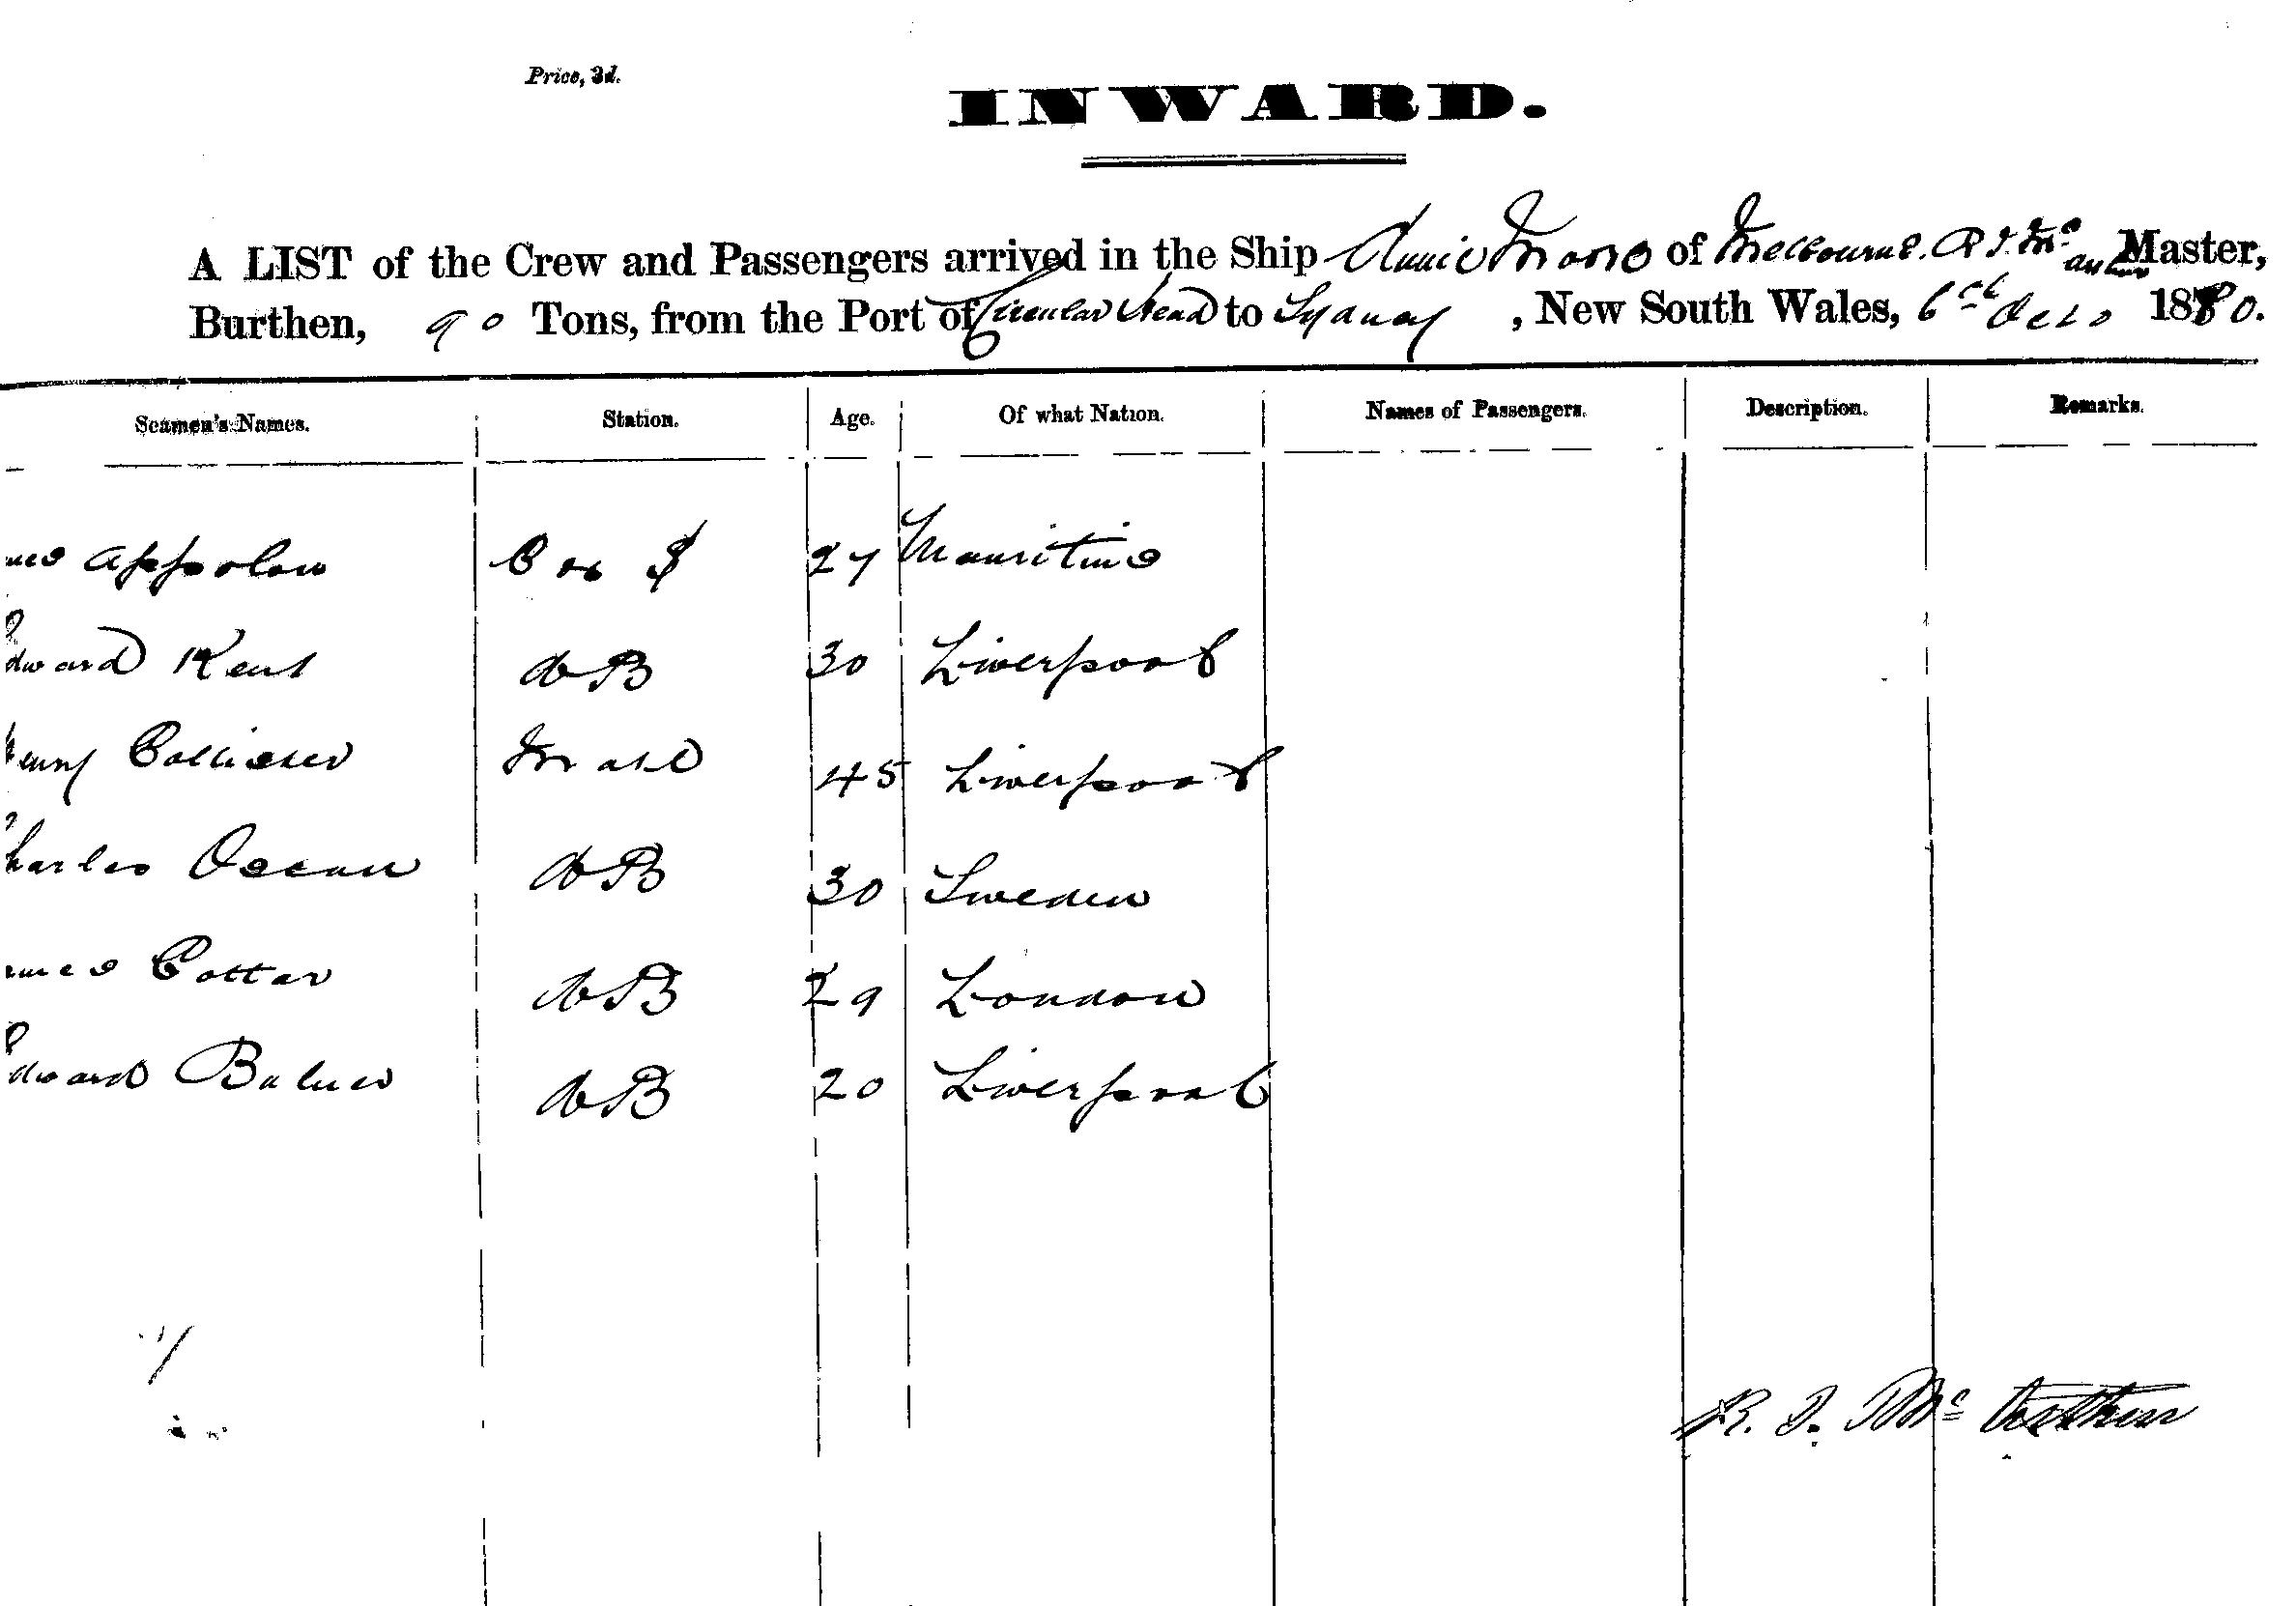 Price, 3d.
INWARD.
A LIST of the Crew and Passengers arrived in the Ship Annie Moore of Melbourne. R J. Mc Master,
Burthen, 90 Tons, from the Port of Circular Head to Sydney, New South Wales, 6th 1880.
Seamen's Names. Station. Age. Of what Nation. Names of Passengers. Description. Remarks.
Appolow 27 Mauritius
dward Kent AB 30 Liverpool
enry Mate 45 Liverpool
harles AB 30 Sweden
mes Cottar AB 29 London
dward AB 20 Liverpool
R. J. Mc Arthur